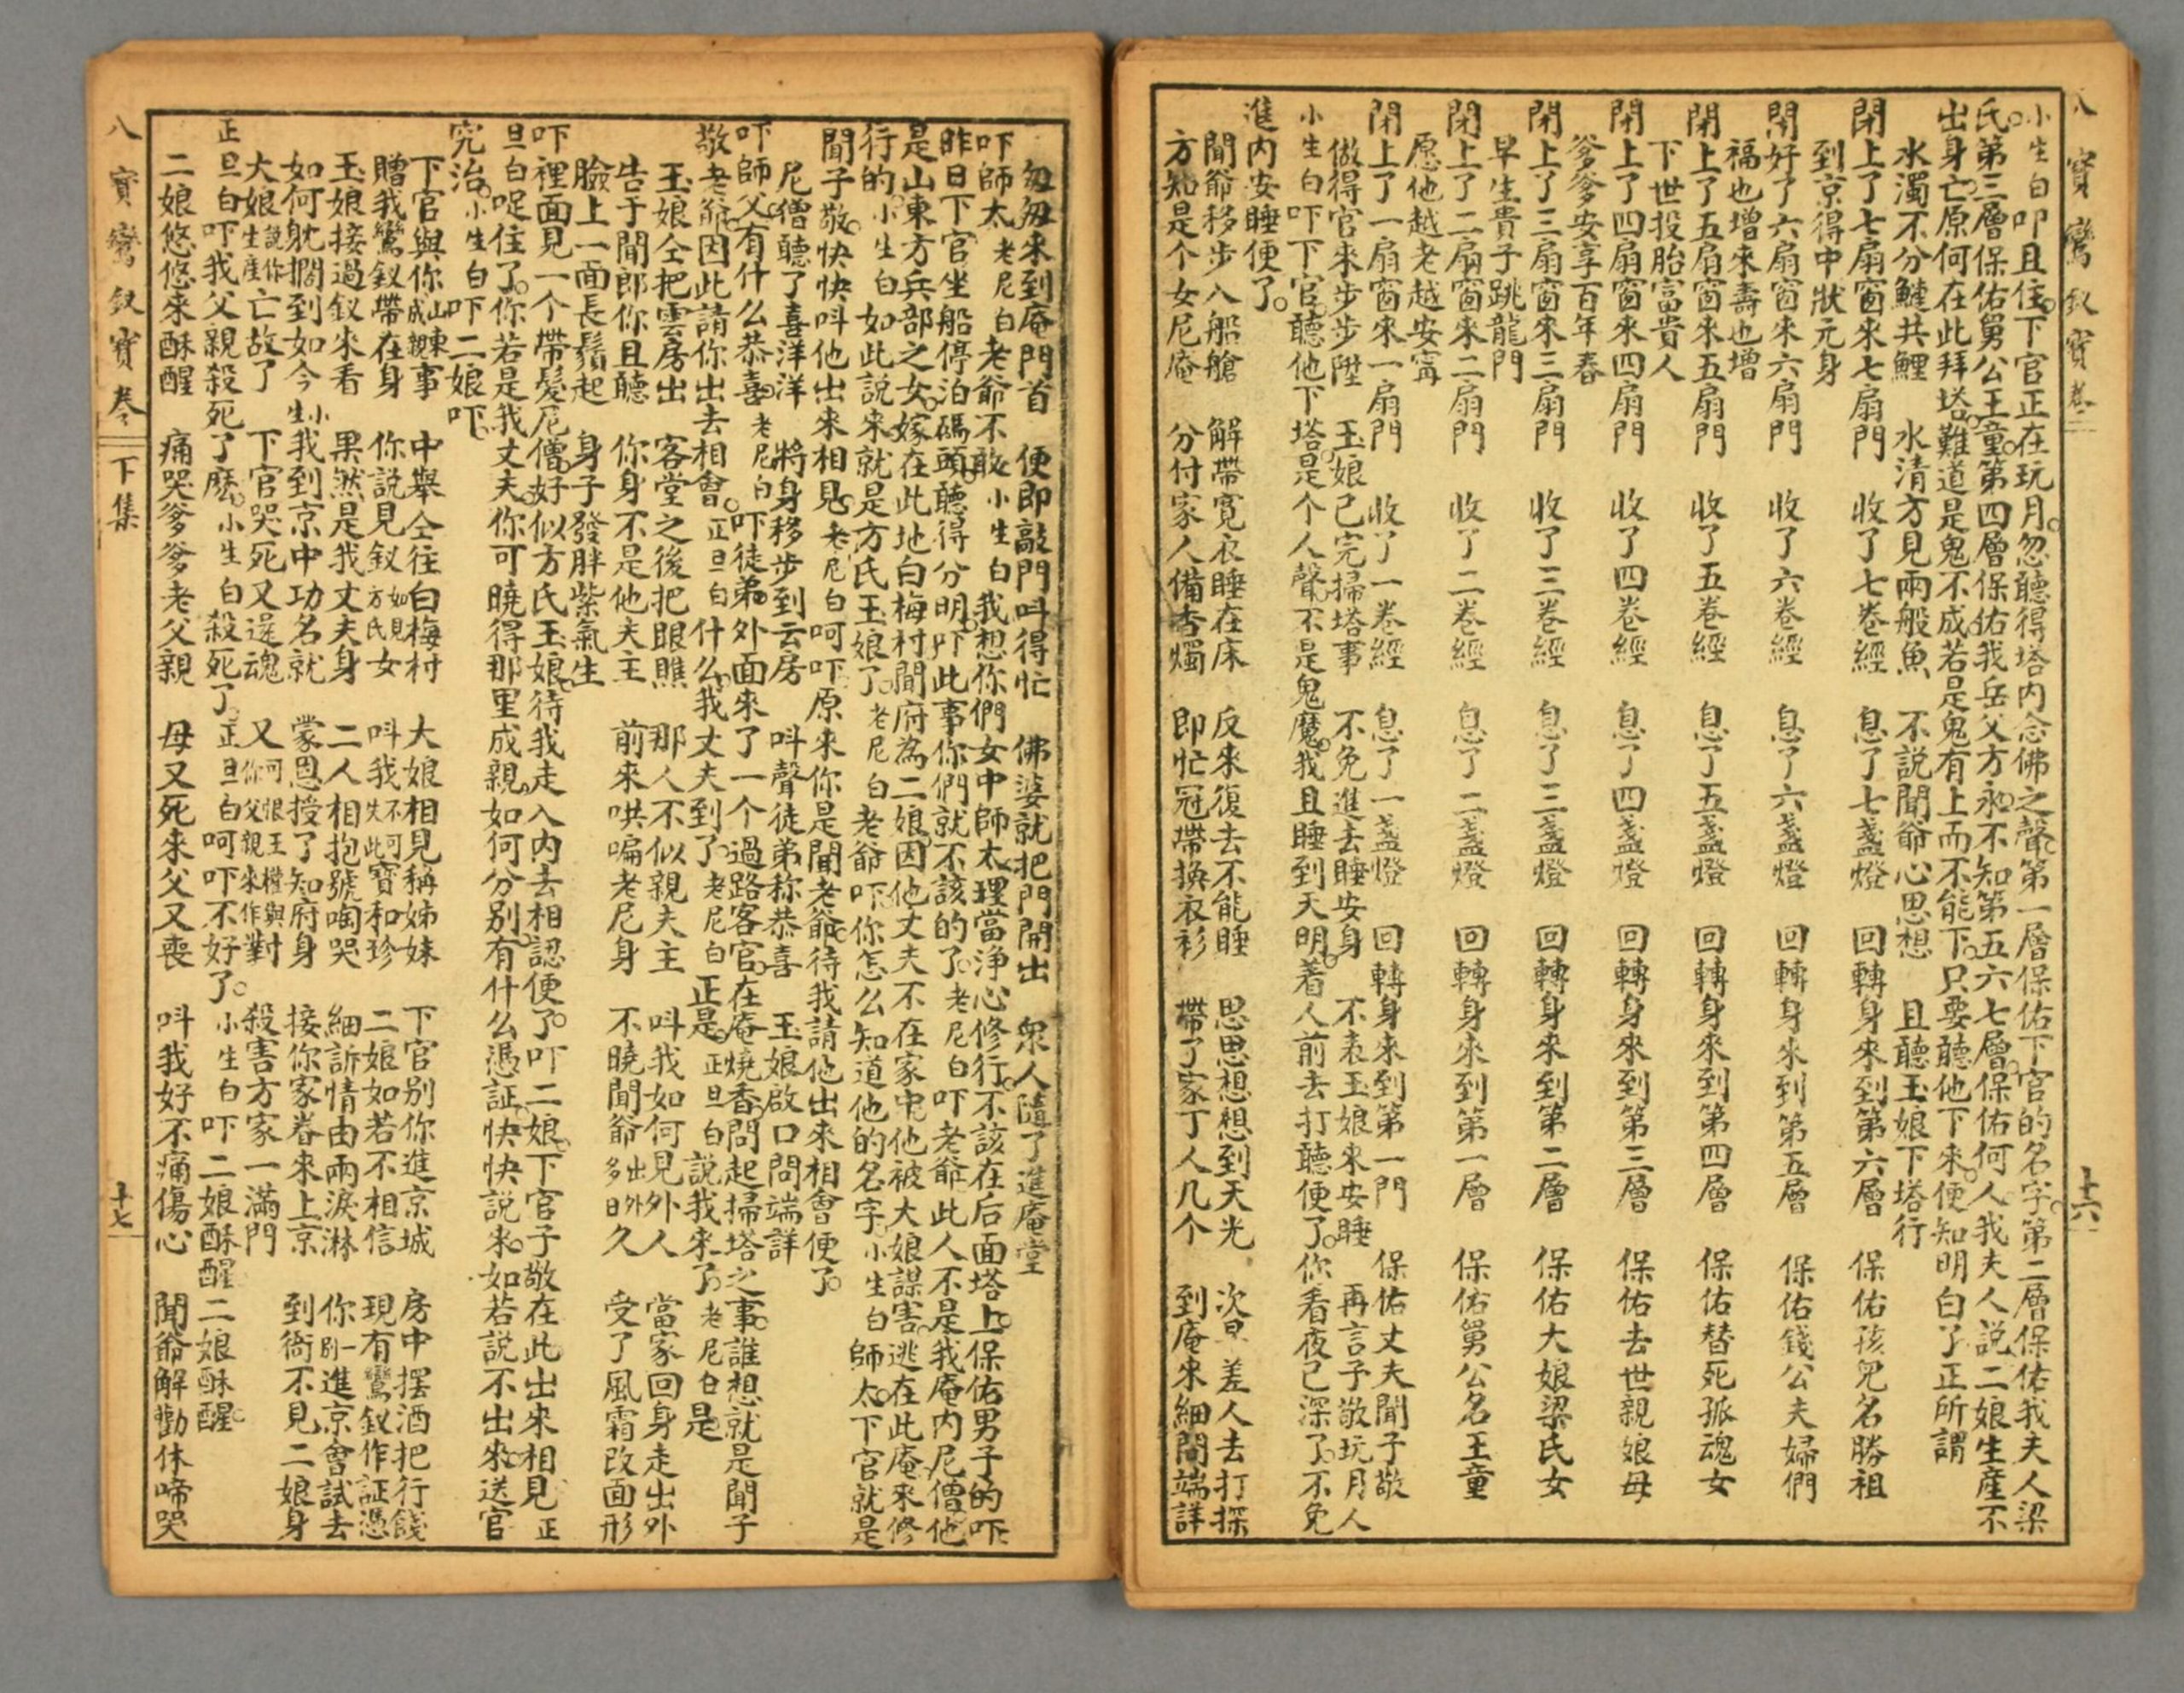 八寶鸞釵寶卷二
十六
小生白吖且住。下官正在玩月。忽聽得塔内念佛之聲。第一層保佑下官的名字。第二層保佑我夫人梁
氏。第三層保佑舅公王童。第四層保佑我岳父方永。不知第五六七層。保佑何人。我夫人説二娘生産不
出身亡。原何在此拜塔。難道是鬼不成。若是鬼有上而不能下。只要聽他下來。便知明白了。正所謂
水濁不分鰱共鯉 水清方見兩般魚 不説聞爺心思想 且聽玉娘下塔行
閉上了七扇窗來七扇門 收了七卷經 息了七盞燈 回轉身來到第六層 保佑孩兒名勝祖
到京得中狀元身
閉好了六扇窗來六扇門 收了六卷經 息了六盞燈 回轉身來到第五層 保佑錢公夫婦們
福也增來壽也增
閉上了五扇窗來五扇門 收了五卷經 息了五盞燈 回轉身來到第四層 保佑替死孤魂女
下世投胎富貴人
閉上了四扇窗來四扇門 收了四卷經 息了四盞燈 回轉身來到第三層 保佑去世親娘母
爹爹安享百年春
閉上了三扇窗來三扇門 收了三卷經 息了三盞燈 回轉身來到第二層 保佑大娘梁氏女
早生貴子跳龍門
閉上了二扇窗來二扇門 收了二卷經 息了二盞燈 回轉身來到第一層 保佑舅公名王童
愿他越老越安寗
閉上了一扇窗來一扇門 收了一卷經 息了一盞燈 回轉身來到第一門 保佑丈夫聞子敬
做得官來步步陞 玉娘已完掃塔事 不免進去睡安身 不表玉娘來安睡 再言子敬玩月人
小生白吖下官。聽他下塔。是个人聲。不是鬼魔。我且睡到天明。着人前去打聽便了。你看夜已深了。不免
進内安睡便了。
聞爺移步入船艙 解帶寬衣睡在床 反來復去不能睡 思思想想到天光 次早差人去打探
方知是个女尼庵 分付家人備香燭 即忙冠帶換衣衫 帶了家丁人几个 到庵來細問端詳
匆匆來到庵門首 便即敲門叫得忙 佛婆就把門開出 衆人隨了進庵堂
吓師太。老尼白老爺不敢。小生白我想你們女中師太。理當浄心修行。不該在后面塔上。保佑男子的吓
昨日下官坐船停泊碼頭。聽得分明。吓此事你們就不該的了。老尼白吓老爺。此人不是我庵内尼僧。他
是山東方兵部之女。嫁在此地白梅村聞府為二娘。因他丈夫不在家中。他被大娘謀害。逃在此庵來修
行的。小生白如此説來。就是方氏玉娘了。老尼白老爺吓。你怎么知道他的名字。小生白師太。下官就是
聞子敬。快快呌他出來相見。老尼白呵吓。原來你是聞老爺。待我請他出來相會便了。
尼僧聽了喜洋洋 將身移步到云房 呌聲徒弟称恭喜 玉娘啟口問端詳
吓師父。有什么恭喜。老尼白吓徒弟。外面來了一个過路客官。在庵燒香。問起掃塔之事。誰想就是聞子
敬老爺。因此請你出去相會。正旦白什么。我丈夫到了。老尼白正是。正旦白説我來了。老尼白是
玉娘仝把雲房出 客堂之後把眼瞧 那人不似親夫主 呌我如何見外人 當家回身走出外
告于聞郎你且聽 你身不是他夫主 前來哄騙老尼身 不曉聞爺多日出外久 受了風霜改面形
臉上一面長鬚起 身子發胖紫氣生
吓裡面見一个帶髮尼僧。好似方氏玉娘。待我走入内去相認便了。吖二娘。下官子敬在此。出來相見。正
旦白呢住了。你若是我丈夫。你可曉得那里成親。如何分别。有什么憑証。快快説來。如若説不出來。送官
究治。小生白吓二娘吓。
下官與你山東成親事 中舉仝往白梅村 大娘相見稱姊妹 下官别你進京城 房中擺酒把行餞
贈我鸞釵帶在身 你説見釵如見方氏女 呌我不可失此寶和珍 二娘如若不相信 現有鸞釵作証憑
玉娘接過釵來看 果然是我丈夫身 二人相抱號啕哭 細訴情由兩淚淋 你卧進京會試去
如何躭擱到如今 小生我到京中功名就 蒙恩授了知府身 接你家眷來上京 到衙不見二娘身
大娘説你生産亡故了 下官哭死又還魂 又可恨王權與你父親來作對 殺害方家一滿門
正旦白吓我父親殺死了麽。小生白殺死了。正旦白呵吓不好了。小生白吓二娘酥醒二娘酥醒。
二娘悠悠來酥醒 痛哭爹爹老父親 母又死來父又喪 呌我好不痛傷心 聞爺解勸休啼哭
八寶鸞釵寶卷
下集
十七